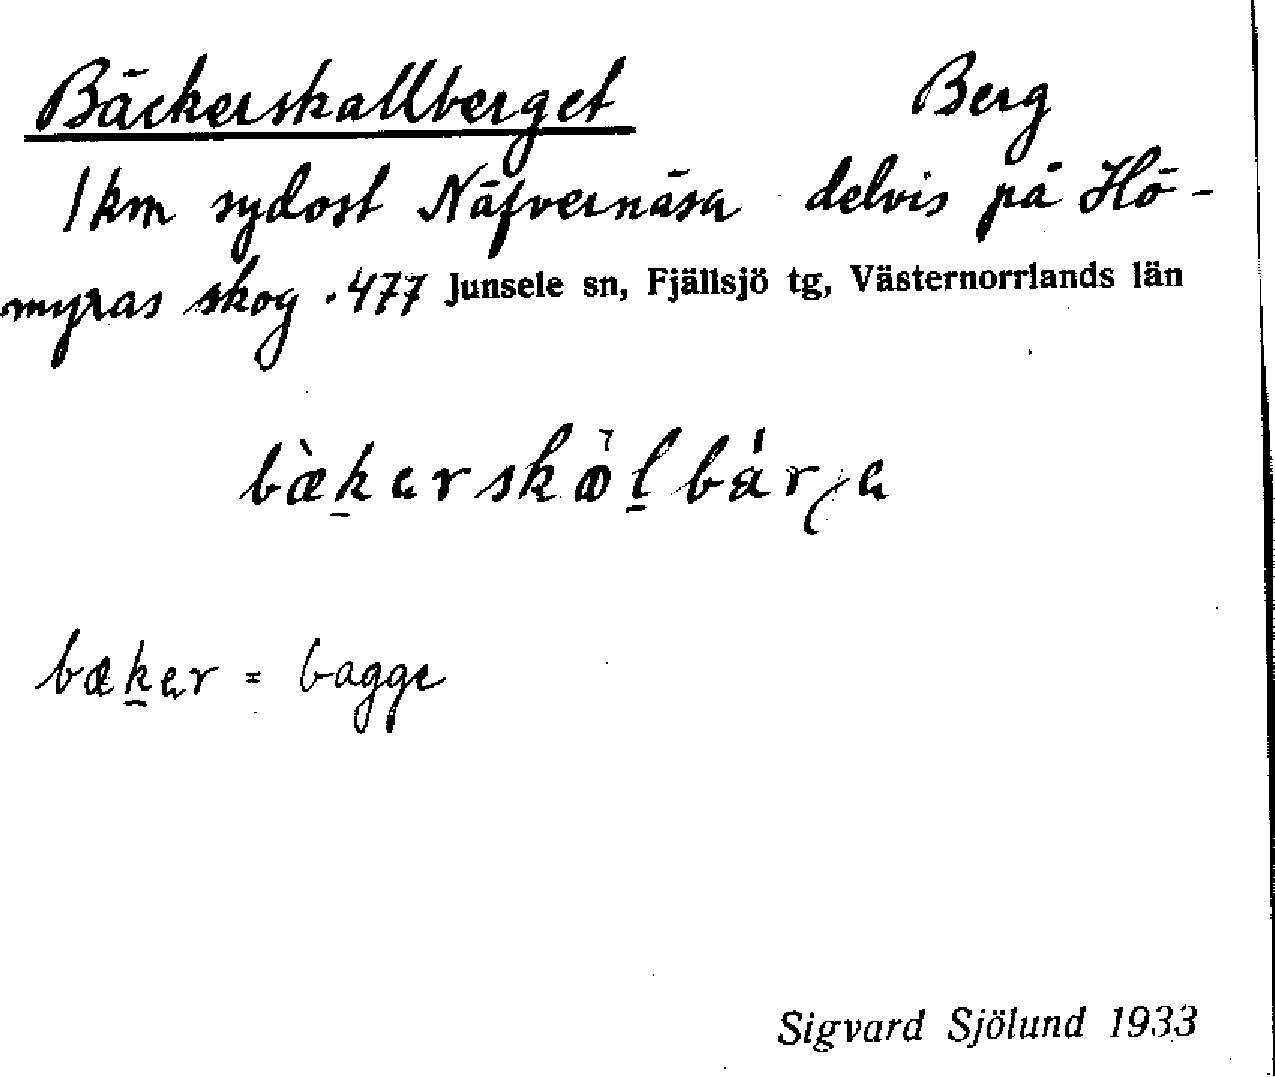 Bäckerskallberget Berg
1 km sydost Näfvernäsa delvis på Hö-
myras skog. 477 Junsele sn, Fjällsjö tg, Västernorrlands län
bæ̀k̠ersköl̠bárjɑ
bæk̠er = bagge
Sigvard Sjölund 1933